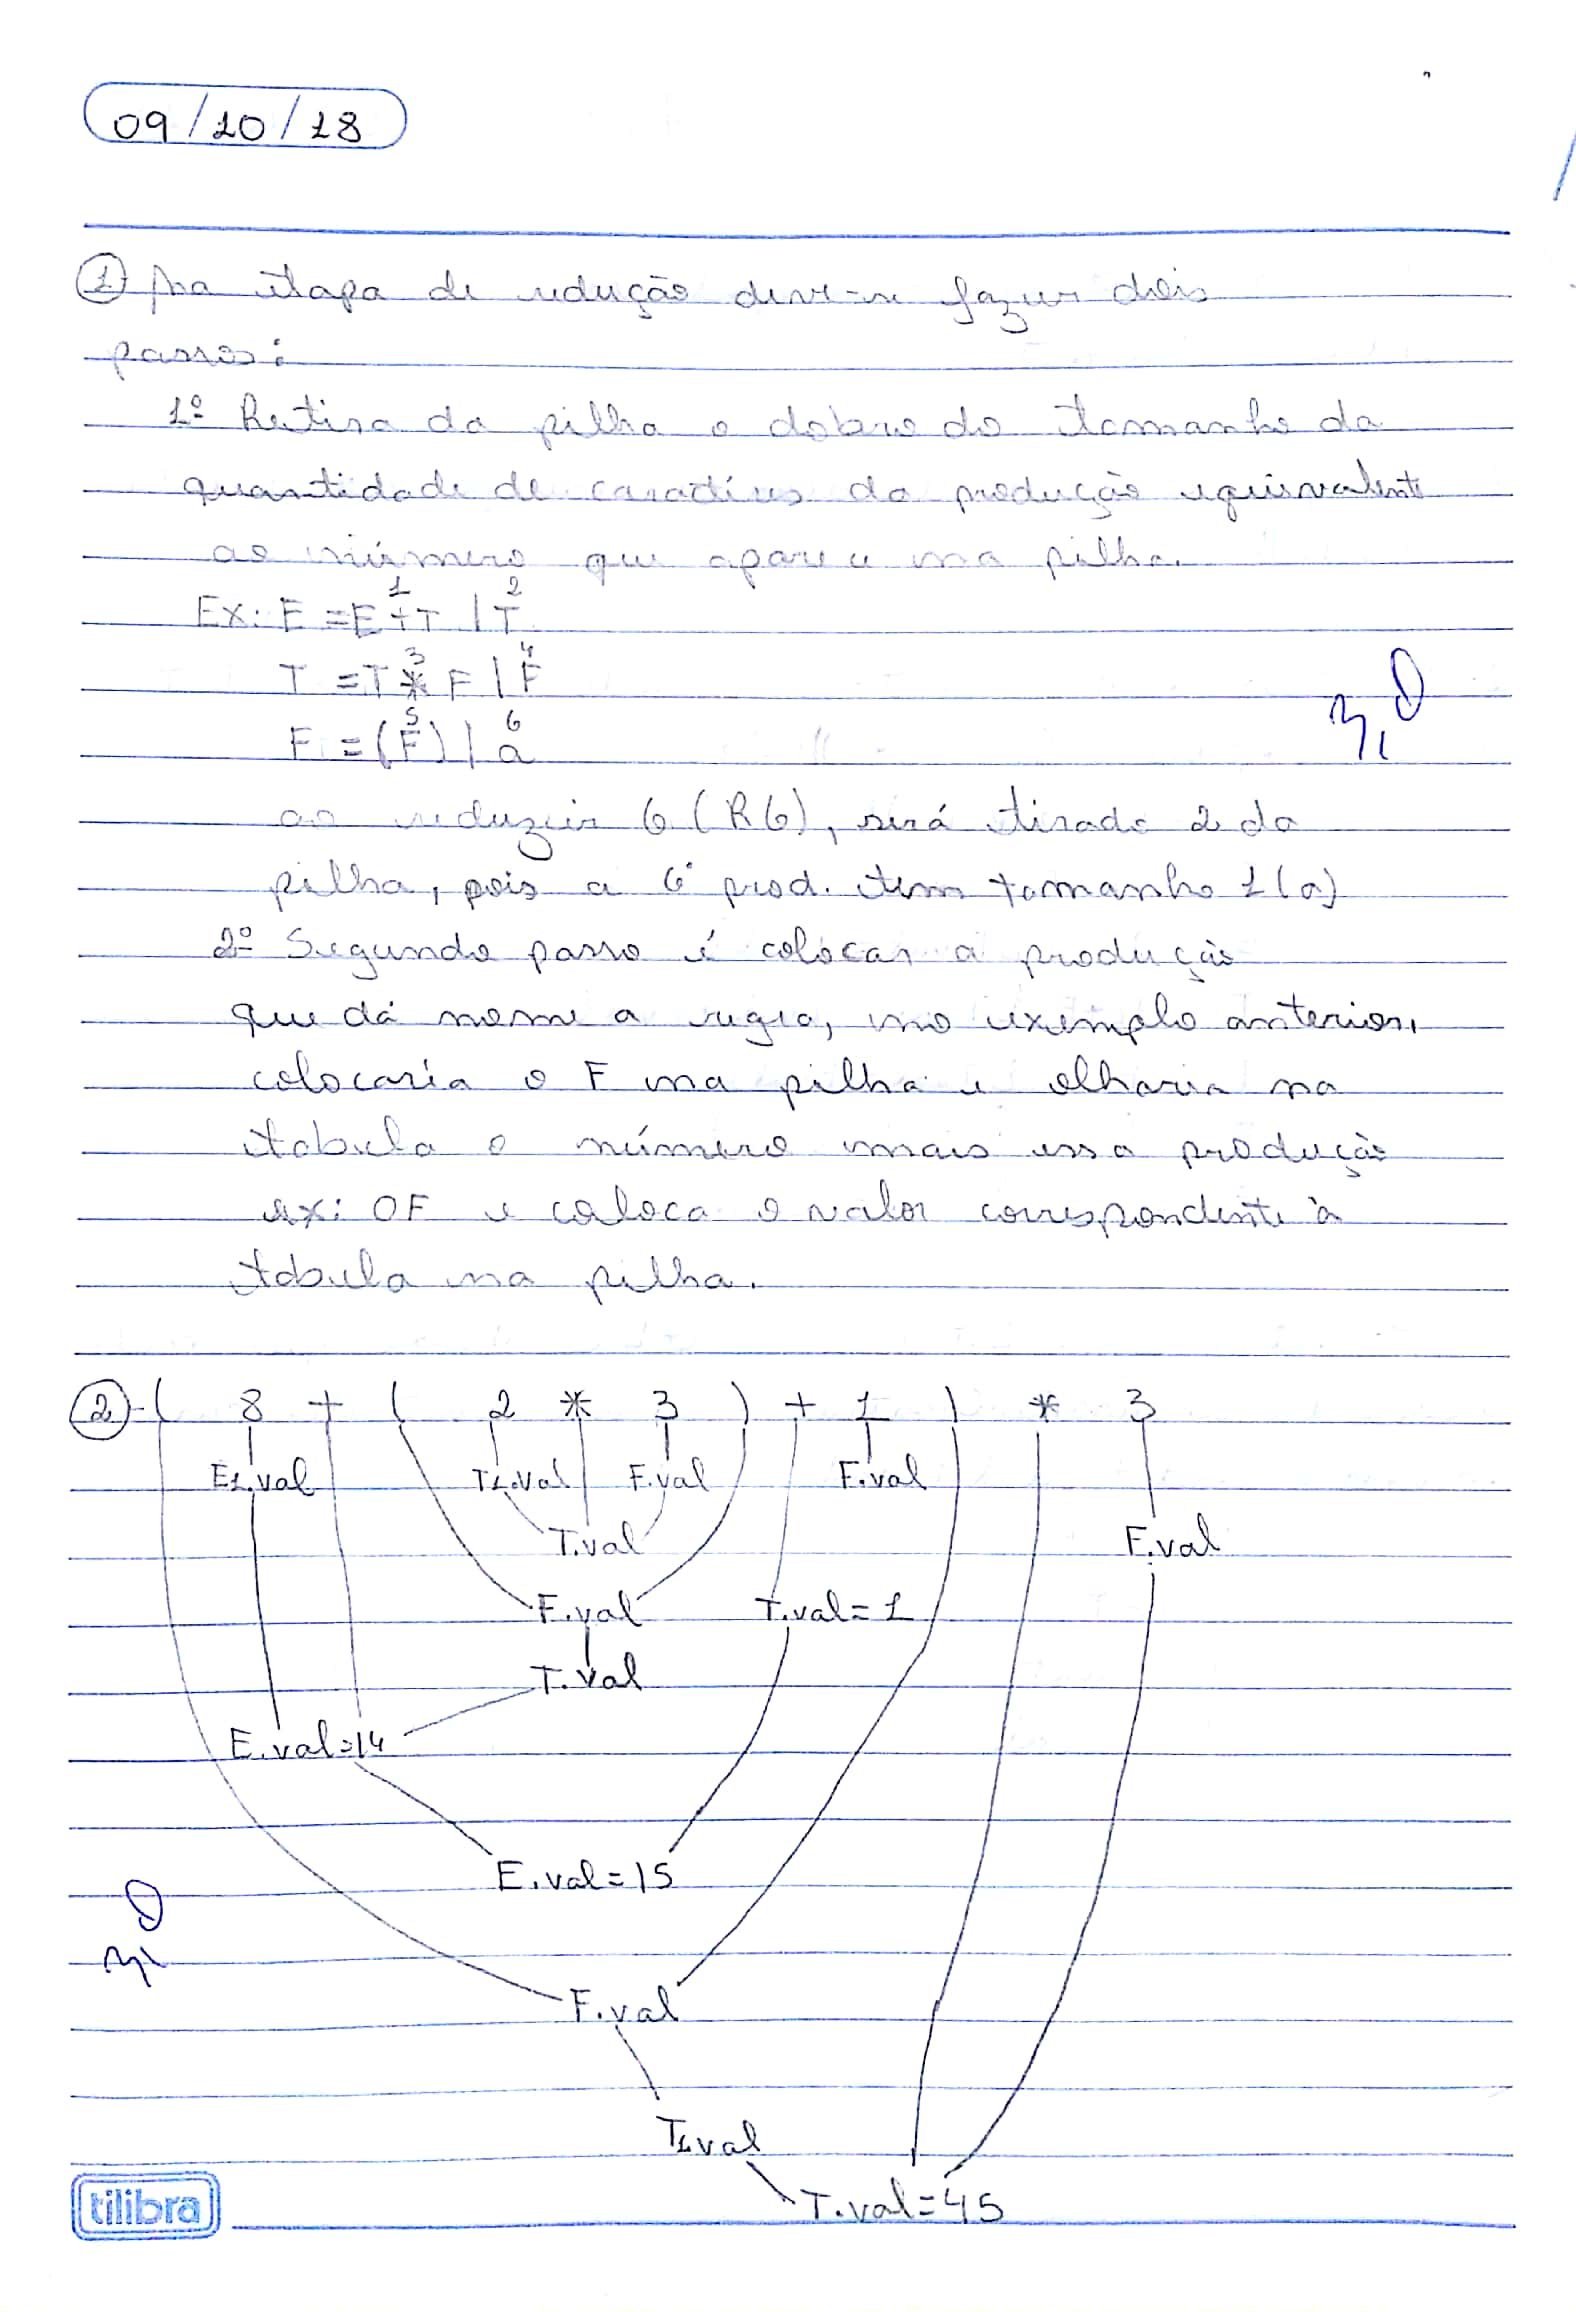 09/10/18
① Na etapa de redução deve-se fazer dois
passos:
1º Retira da pilha o dobro do tamanho da
quantidade de caractéres da produção equivalente
ao número que aparece na pilha.
1 2
Ex: E = E + T | T
3 4
T = T * F | F
5 6
F = (F) | a
3,0
ao reduzir 6 (R6), será tirado 2 da
pilha, pois a 6ª prod. tem tamanho 1 (a)
2º Segundo passo é colocar a produção
que dá nome a regra, no exemplo anterior,
colocaria o F na pilha e olharia na
tabela o número mais essa produção
ex: 0F e coloca o valor correspondente à
tabela na pilha.
② ( 8 + ( 2 * 3 ) + 1 ) * 3
E1.val T1.val F.val F.val
T.val F.val
F.val T.val = 1
T.val
E.val = 14
E.val = 15
3,0
F.val
T1.val
T.val = 45
tilibra